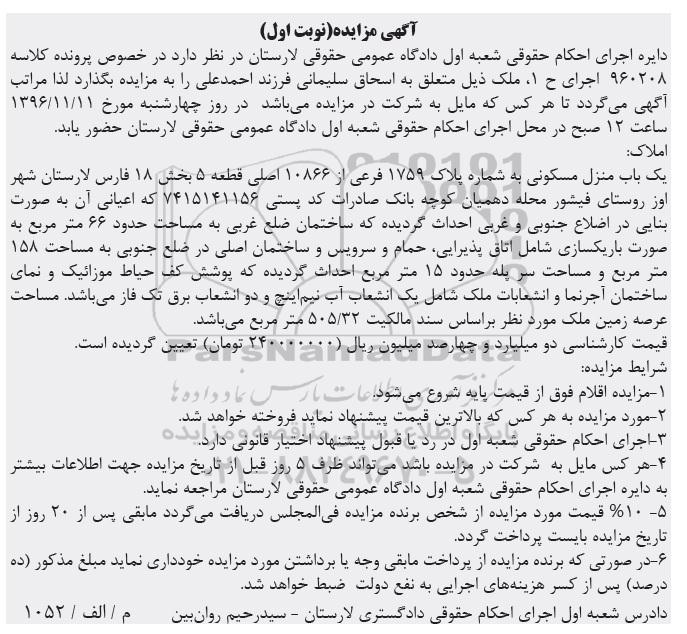 آگهی مزایده(نوبت اول)
دایره اجرای احکام حقوقی شعبه اول دادگاه عمومی حقوقی لارستان در نظر دارد در خصوص پرونده کلاسه
۹۶۰۲۰۸ اجرای ح ۱، ملک ذیل متعلق به اسحاق سلیمانی فرزند احمدعلی را به مزایده بگذارد لذا مراتب
آگهی می‌گردد تا هر کس که مایل به شرکت در مزایده می‌باشد در روز چهارشنبه مورخ ۱۳۹۶/۱۱/۱۱
ساعت ۱۲ صبح در محل اجرای احکام حقوقی شعبه اول دادگاه عمومی حقوقی لارستان حضور یابد.
املاک:
یک باب منزل مسکونی به شماره پلاک ۱۷۵۹ فرعی از ۱۰۸۶۶ اصلی قطعه ۵ بخش ۱۸ فارس لارستان شهر
اوز روستای فیشور محله دهمیان کوچه بانک صادرات کد پستی ۷۴۱۵۱۴۱۱۵۶ که اعیانی آن به صورت
بنایی در اضلاع جنوبی و غربی احداث گردیده که ساختمان ضلع غربی به مساحت حدود ۶۶ متر مربع به
صورت باریکسازی شامل اتاق پذیرایی، حمام و سرویس و ساختمان اصلی در ضلع جنوبی به مساحت ۱۵۸
متر مربع و مساحت سر پله حدود ۱۵ متر مربع احداث گردیده که پوشش کف حیاط موزائیک و نمای
ساختمان آجرنما و انشعابات ملک شامل یک انشعاب آب نیم‌اینچ و دو انشعاب برق تک فاز می‌باشد. مساحت
عرصه زمین ملک مورد نظر براساس سند مالکیت ۵۰۵/۳۲ متر مربع می‌باشد.
قیمت کارشناسی دو میلیارد و چهارصد میلیون ریال (۲۴۰۰۰۰۰۰۰ تومان) تعیین گردیده است.
ParsNamadData
شرایط مزایده:
۱-مزایده اقلام فوق از قیمت پایه شروع می‌شود.
۲-مورد مزایده به هر کس که بالاترین قیمت پیشنهاد نماید فروخته خواهد شد.
۳-اجرای احکام حقوقی شعبه اول در رد یا قبول پیشنهاد اختیار قانونی دارد.
۴-هر کس مایل به شرکت در مزایده باشد می‌تواند ظرف ۵ روز قبل از تاریخ مزایده جهت اطلاعات بیشتر
به دایره اجرای احکام حقوقی شعبه اول دادگاه عمومی حقوقی لارستان مراجعه نماید.
۵- ۱۰% قیمت مورد مزایده از شخص برنده مزایده فی‌المجلس دریافت می‌گردد مابقی پس از ۲۰ روز از
تاریخ مزایده بایست پرداخت گردد.
۶-در صورتی که برنده مزایده از پرداخت مابقی وجه یا برداشتن مورد مزایده خودداری نماید مبلغ مذکور (ده
درصد) پس از کسر هزینه‌های اجرایی به نفع دولت ضبط خواهد شد.
دادرس شعبه اول اجرای احکام حقوقی دادگستری لارستان - سیدرحیم روان‌بین م / الف / ۱۰۵۲